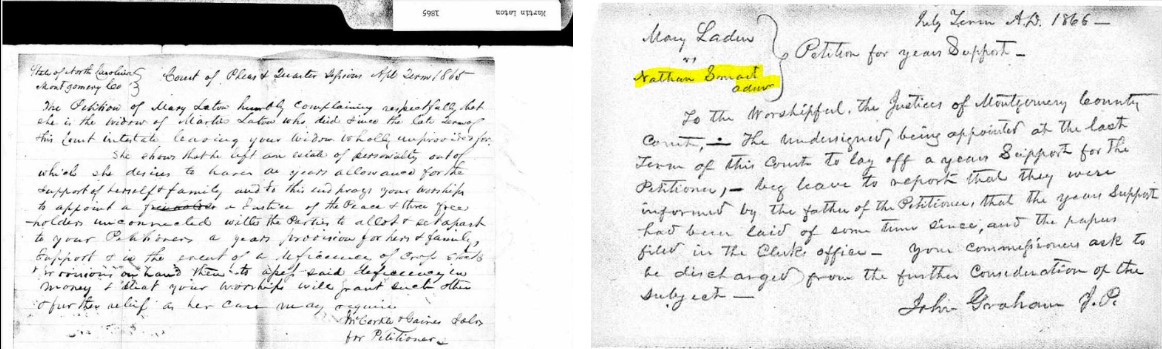 Martin Laton 1865
State of North Carolina
Montgomery Co
Court of Pleas & Quarter Sessions Term 1865
The Petition of Mary Laton humbly complaining respectfully that
she is the widow of Martin Laton who died since the last Term of
this Court intestate leaving your widow wholly unprovided for,
She shows that he left an estate of personalty out of
which she desires to have a years allowance for the
support of herself & family and to this end prays your worships
to appoint a a Justice of the Peace & three free
-holders unconnected with the Parties to allot & set apart
to your Petitioners a years provision for her & family,
Support & in the event of a deficiency of Crop stock
& provisions on hand then to assess said deficiency in
money & that your worships will grant such other
& further relief as her case may require
McCorkle & Gaines Sols
for Petitioner
July Term A.D. 1866 —
Mary Laden
vs
Nathan Smart
admr
Petition for years Support —
To the Worshipful, the Justices of Montgomery County
Court, — The undersigned, being appointed at the last
Term of this Court to lay off a years Support for the
Petitioner, — beg leave to report that they were
informed by the father of the Petitioner, that the years Support
had been laid of some time since, and the papers
filed in the Clerks office — your commissioners ask to
be discharged from the further Consideration of the
Subject —
John Graham J.P.